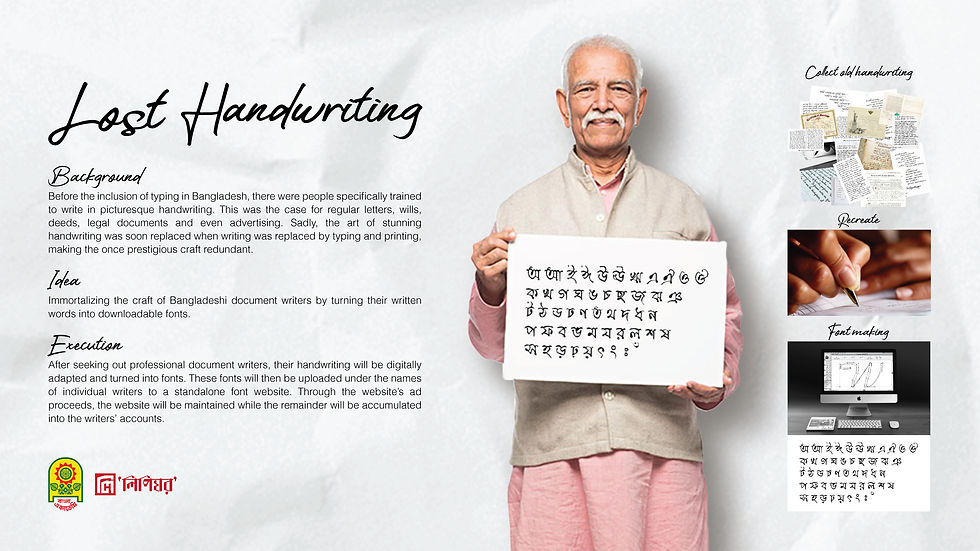 Lost Handwriting
Background
Before the inclusion of typing in Bangladesh, there were people specifically trained
to write in picturesque handwriting. This was the case for regular letters, wills,
deeds, legal documents and even advertising. Sadly, the art of stunning
handwriting was soon replaced when writing was replaced by typing and printing,
making the once prestigious craft redundant.
Idea
Immortalizing the craft of Bangladeshi document writers by turning their written
words into downloadable fonts.
Execution
After seeking out professional document writers, their handwriting will be digitally
adapted and turned into fonts. These fonts will then be uploaded under the names
of individual writers to a standalone font website. Through the website's ad
proceeds, the website will be maintained while the remainder will be accumulated
into the writers' accounts.
বাংলা
একাডেমি
'লিপিঘর'
অ আ ই ঈ উ ঊ ঋ এ ঐ ও ঔ
ক খ গ ঘ ঙ চ ছ জ ঝ ঞ
ট ঠ ড ঢ ণ ত থ দ ধ ন
প ফ ব ভ ম য র ল শ ষ
স হ ড় ঢ় য় ৎ ং ঃ ঁ
Collect old handwriting
Recreate
Font making
অ আ ই ঈ উ ঊ ঋ এ ঐ ও ঔ
ক খ গ ঘ ঙ চ ছ জ ঝ ঞ
ট ঠ ড ঢ ণ ত থ দ ধ ন
প ফ ব ভ ম য র ল শ ষ
স হ ড় ঢ় য় ৎ ং ঃ ঁ